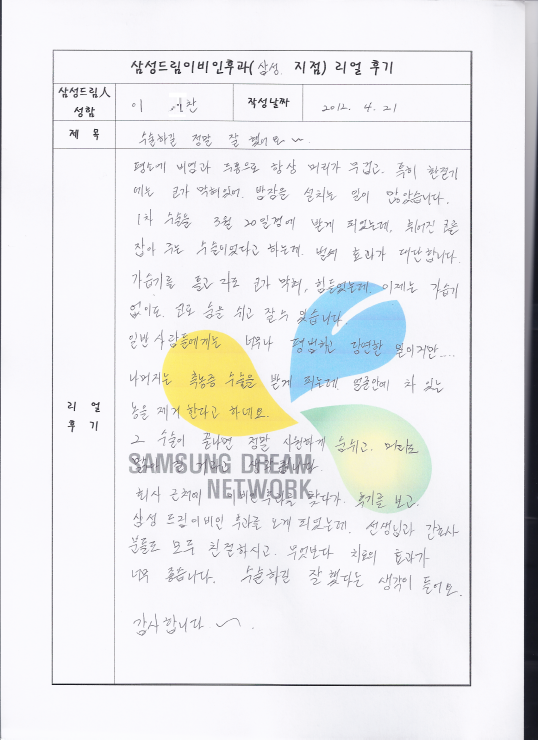 삼성드림이비인후과(삼성 지점) 리얼 후기
삼성드림人
성함
이 찬
작성날짜
2012. 4. 21
제 목
수술하길 정말 잘 했어요~
리 얼
후 기
평소에 비염과 두통으로 항상 머리가 무겁고, 특히 환절기
에는 코가 막혀있어, 밤잠을 설치는 일이 많았습니다.
1차 수술을 3월 20일경에 받게 되었는데, 휘어진 코를
잡아 주는 수술이었다고 하는데, 벌써 효과가 대단합니다.
가습기를 틀고 자도 코가 막혀, 힘들었는데, 이제는 가습기
없이도, 코로 숨을 쉬고 잘 수 있습니다.
일반 사람들에게는 너무나 평범하고 당연한 일이지만....
나머지는 축농증 수술을 받게 되는데, 얼굴안에 차 있는
농을 제거 한다고 하네요.
그 수술이 끝나면 정말 시원하게 숨쉬고, 머리도
SAMSUNG DREAM
NETWORK
회사 근처에 이비인후과를 찾다가, 후기를 보고,
삼성 드림이비인 후과를 오게 되었는데, 선생님과 간호사
분들도 모두 친절하시고, 무엇보다 치료의 효과가
너무 좋습니다. 수술하길 잘 했다는 생각이 들어요.
감사합니다 ~.